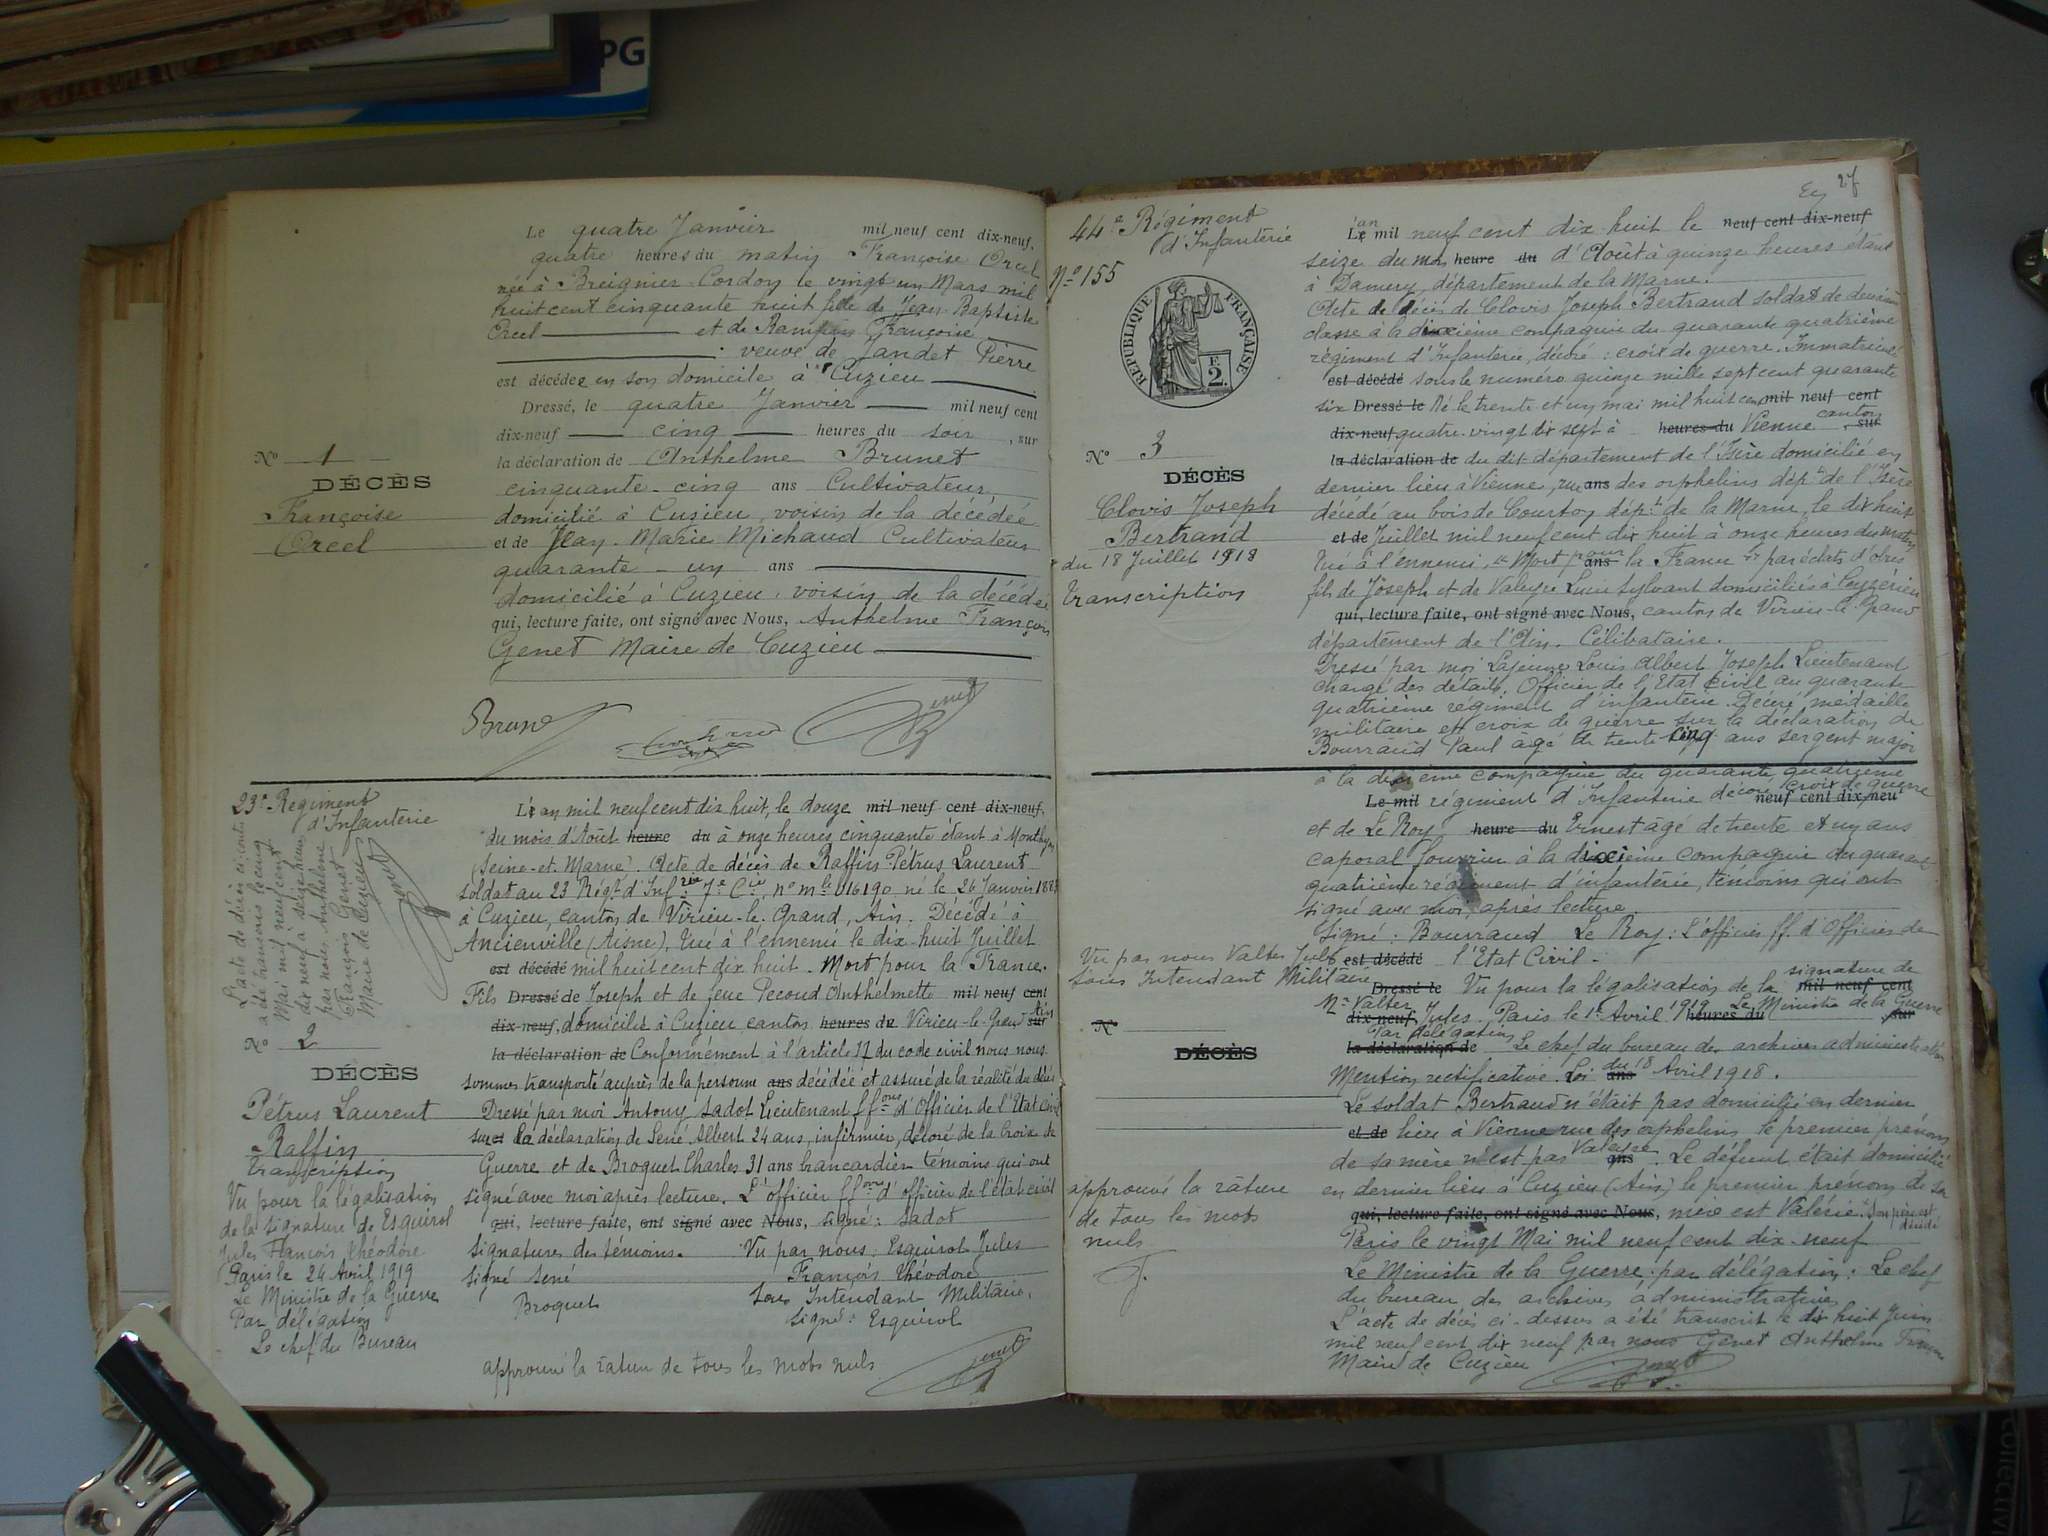 PG
Le quatre Janvier mil neuf cent dix-neuf,
quatre heures du matin Françoise Orcel
née à Breignier-Cordon le vingt un Mars mil
huit cent cinquante huit fille de Jean Baptiste
Orcel et de Françoise
veuve de Jandet Pierre
est décédée en son domicile à Cuzieu
Dressé, le quatre Janvier mil neuf cent
dix-neuf cinq heures du soir, sur
la déclaration de Anthelme Brunet
cinquante-cinq ans Cultivateur
domicilié à Cuzieu, voisin de la décédée
et de Jean-Marie Michaud Cultivateur
quarante-un ans
domicilié à Cuzieu, voisin de la décédée
qui, lecture faite, ont signé avec Nous, Anthelme François
Genet Maire de Cuzieu
Nº 1
DÉCÈS
Françoise
Orcel
Brunet
Genet
23e Régiment
d'Infanterie
L'acte de décès ci-contre
a été transcrit le cinq
Mai mil neuf cent
dix neuf à seize heures
par nous Anthelme
François Genet
Maire de Cuzieu
Genet
Nº 2
DÉCÈS
Pétrus Laurent
Raffin
transcription
Vu pour la légalisation
de la signature de Esquirol
Jules François Théodore
Paris le 24 Avril 1919
Le Ministre de la Guerre
Par délégation
Le chef du Bureau
L'an mil neuf cent dix huit, le douze mil neuf cent dix-neuf,
du mois d'Août heure du à onze heures cinquante étant à Monthyon
(Seine-et-Marne). Acte de décès de Raffin Pétrus Laurent
soldat au 23 Régt d'Infrie 7e Cie, nº mle 016190 né le 26 Janvier
à Cuzieu, canton de Virieu-le-Grand, Ain. Décédé à
Ancienville (Aisne), tué à l'ennemi le dix huit Juillet
est décédé mil huit cent dix huit. Mort pour la France.
Fils Dressé de Joseph et de feue Pecoud Anthelmette mil neuf cent
dix-neuf, domiciliés à Cuzieu canton heures du Virieu-le-Grand Ain sur
la déclaration de Conformément à l'article 77 du code civil nous nous
sommes transporté auprès de la personne ans décédée et assuré de la réalité du décès
Dressé par moi Antony Sadot Lieutenant ffons d'Officier de l'Etat civil
sur et la déclaration de Sené Albert 24 ans, infirmier, décoré de la Croix de
Guerre et de Broquet Charles 31 ans brancardier témoins qui ont
signé avec moi après lecture. L'officier ffons d'officier de l'état civil
qui, lecture faite, ont signé avec Nous, signé: Sadot
Signatures des témoins. Vu par nous: Esquirol Jules
Signé Sené François Théodore
Broquet Sous Intendant Militaire,
Signé: Esquirol
approuvé la rature de tous les mots nuls
Genet
27
44e Régiment
d'Infanterie
Nº 155
RÉPUBLIQUE FRANÇAISE
E
2.
Nº 3
DÉCÈS
Clovis Joseph
Bertrand
du 18 Juillet 1918
transcription
L'an mil neuf cent dix huit le neuf cent dix-neuf
seize du mois heure du d'Août à quinze heures étant
à Damery, département de la Marne.
Acte de décès de Clovis Joseph Bertrand soldat de deuxième
classe à la dixième compagnie du quarante quatrième
régiment d'Infanterie, décoré: croix de guerre. Immatriculé
est décédé sous le numéro quinze mille sept cent quarante
six Dressé le Né le trente et un mai mil huit cent mil neuf cent
dix-neuf quatre-vingt dix sept à heures du Vienne canton sur
la déclaration de du dit département de l'Isère domicilié en
dernier lieu à Vienne, rue ans des orphelins dépt de l'Isère
décédé au bois de Courton dépt de la Marne, le dix huit
et de Juillet mil neuf cent dix huit à onze heures du matin
Tué à l'ennemi, "Mort pour ans la France" par éclats d'obus
fils de Joseph et de Valeyre Lucie Sylvant domiciliés à Ceyzérieu
qui, lecture faite, ont signé avec Nous, canton de Virieu-le-Grand
département de l'Ain. Célibataire.
Dressé par moi Lajeune Louis Albert Joseph Lieutenant
chargé des détails. Officier de l'Etat civil au quarante
quatrième régiment d'infanterie. Décoré médaille
militaire et croix de guerre sur la déclaration de
Bourraud Paul âgé de trente cinq ans sergent major
à la dixième compagnie du quarante quatrième
Le mil régiment d'Infanterie décoré croix de guerre neuf cent dix-neuf
et de Le Roy heure du Ernest âgé de trente et un ans
caporal fourrier à la dixième compagnie du quarante
quatrième régiment d'infanterie, témoins qui ont
signé avec moi, après lecture.
Signé: Bourraud Le Roy: L'officier ff. d'Officier de
est décédé l'Etat Civil.
Vu par nous Valter Jules
Sous Intendant Militaire
Dressé le Vu pour la légalisation de la signature de mil neuf cent
Mr Valter dix-neuf Jules. Paris le 1er Avril 1919 heures du Le Ministre de la Guerre sur
Par délégation la déclaration de Le chef du bureau des archives administratives
Mention rectificative. Loi du 18 ans Avril 1918.
Le soldat Bertrand n'était pas domicilié en dernier
et de lieu à Vienne rue des orphelins le premier prénom
de sa mère n'est pas Valeyre ans. Le défunt était domicilié
en dernier lieu à Cuzieu (Ain) le premier prénom de sa
qui, lecture faite, ont signé avec Nous, mère est Valérie. Son père est décédé
Paris le vingt Mai mil neuf cent dix-neuf
Le Ministre de la Guerre: par délégation: Le chef
du bureau des archives administratives
L'acte de décès ci-dessus a été transcrit le dix huit Juin
mil neuf cent dix neuf par nous Genet Anthelme
Maire de Cuzieu Genet
Nº
DÉCÈS
approuvé la rature
de tous les mots
nuls